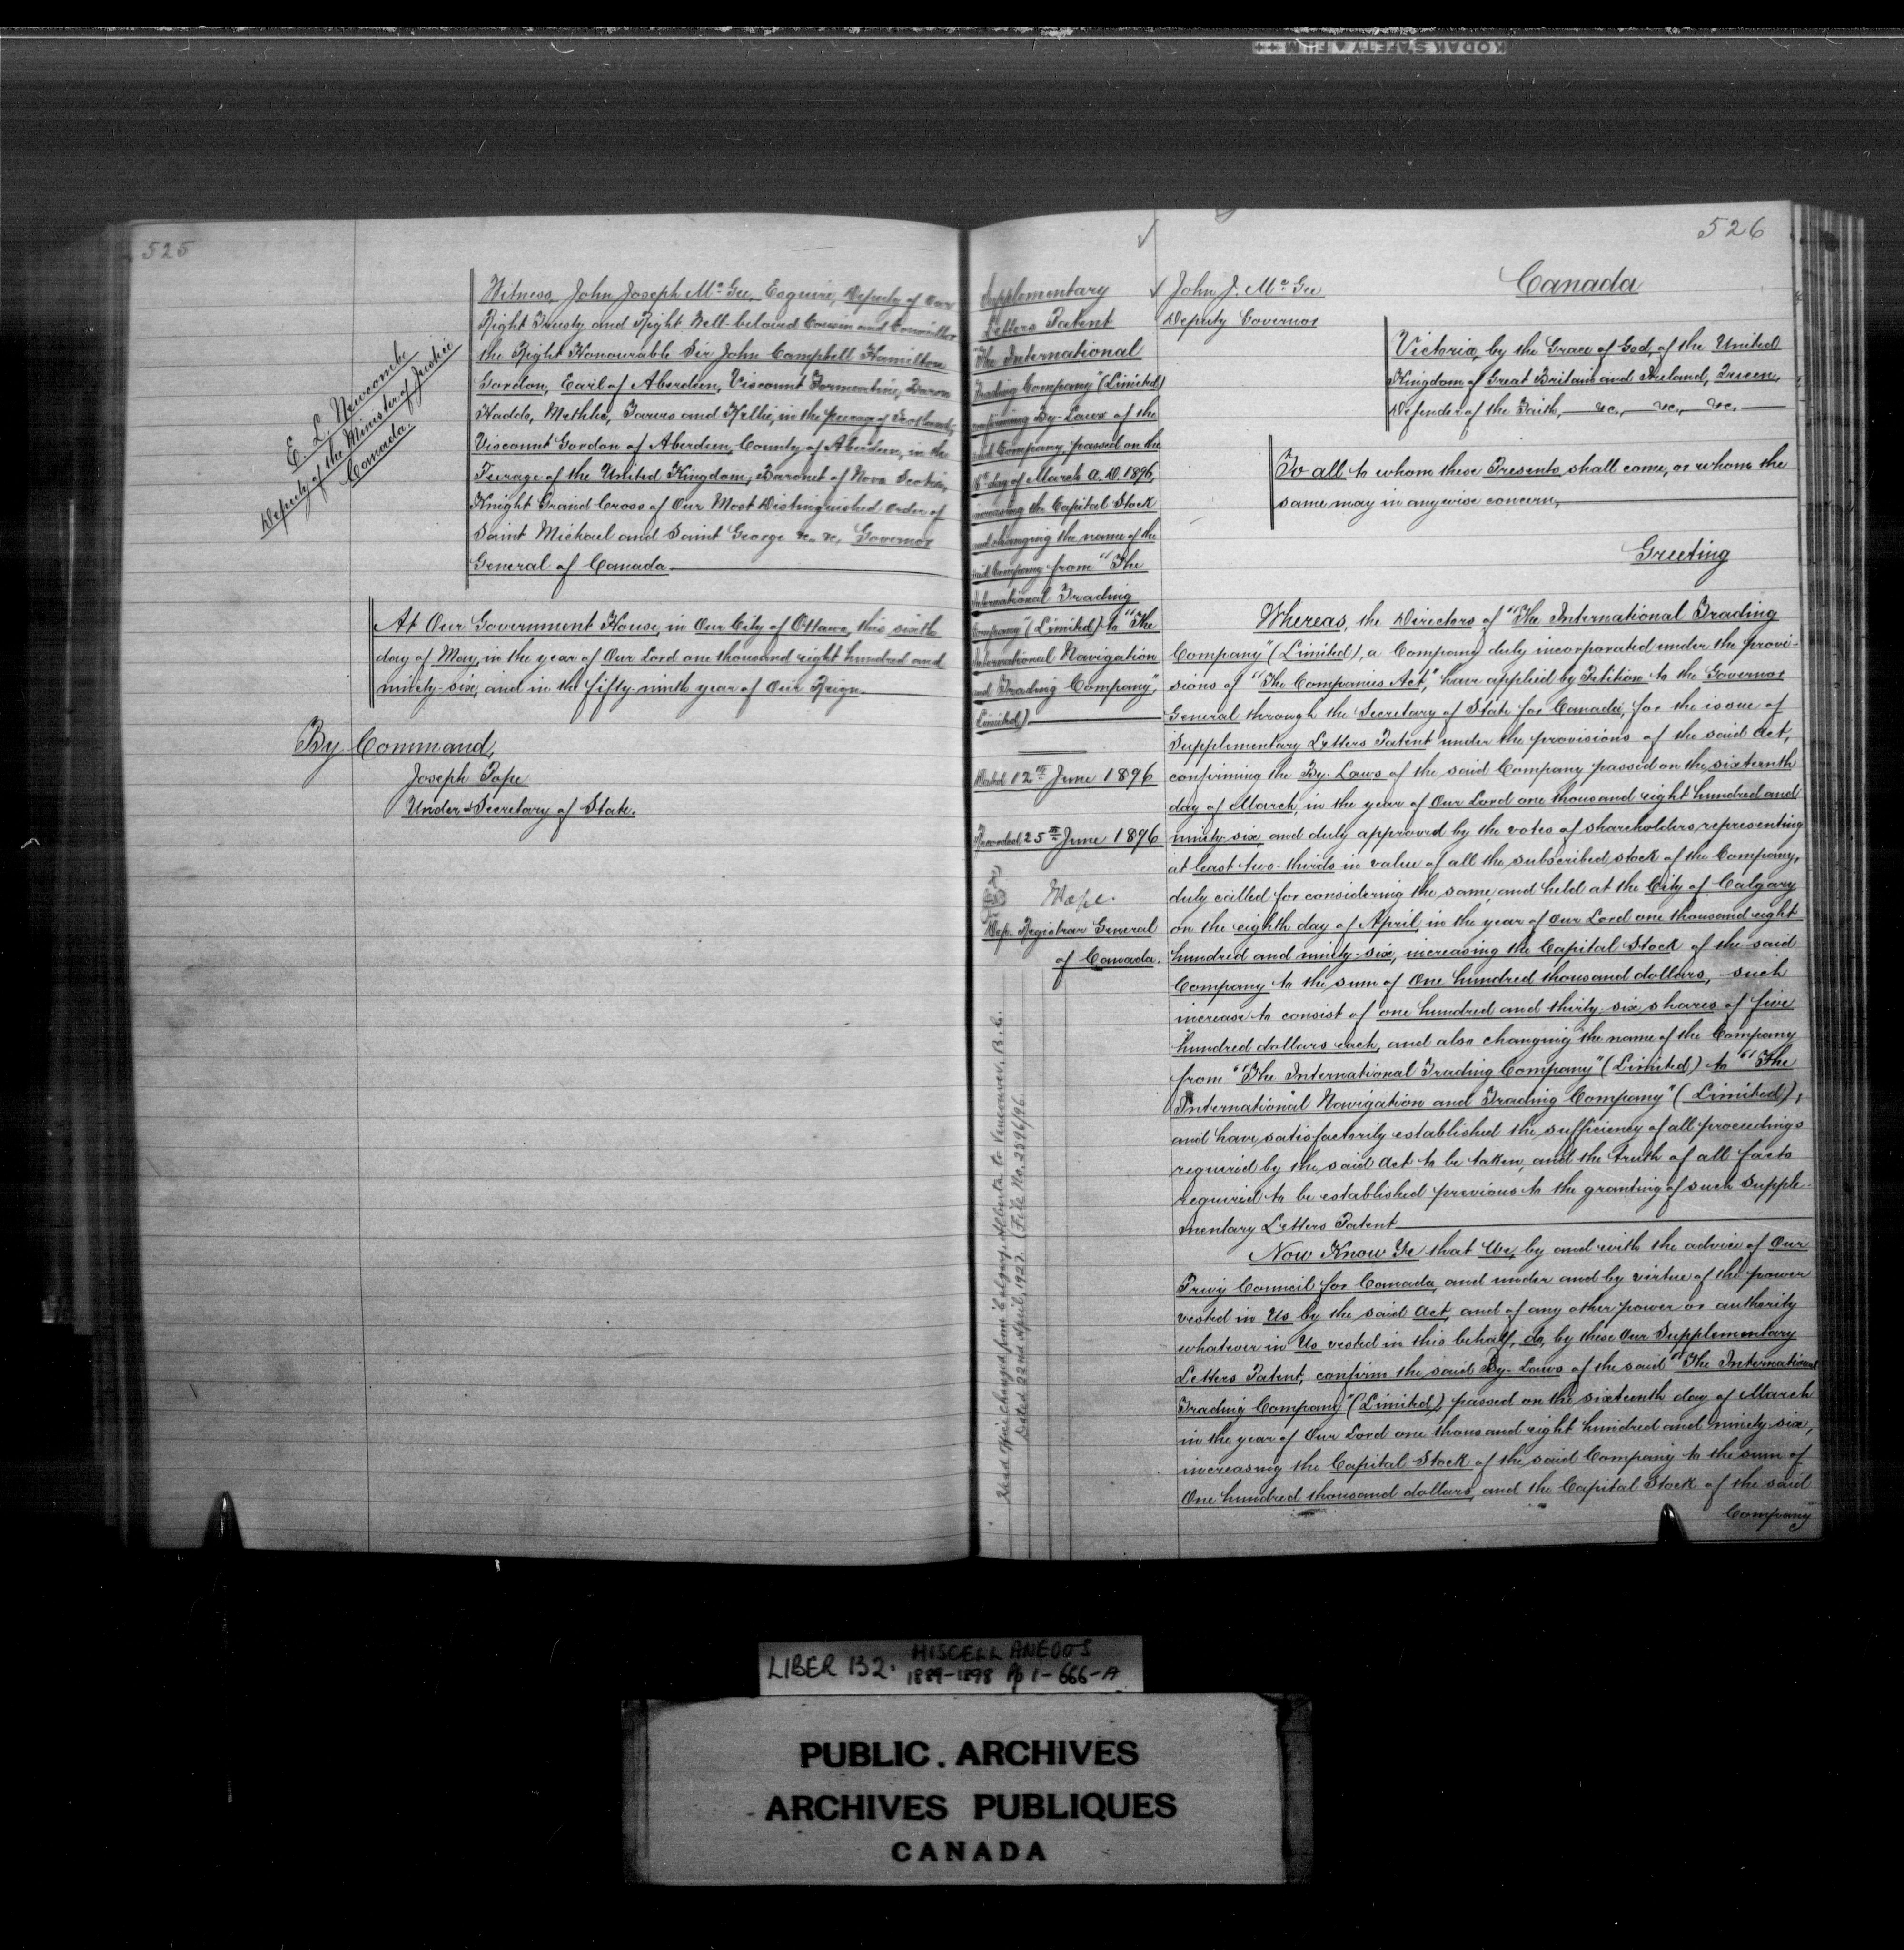 KODAK SAFETY FILM
525
Witness, John Joseph Mc. Gee, Esquire, Deputy of Our
Right Trusty and Right Well-beloved Cousin and Councillor
the Right Honourable Sir John Campbell Hamilton
Gordon, Earl of Aberdeen, Viscount Formartine, Baron
Haddo, Methlic, Tarves and Kellie, in the peerage of Scotland;
Viscount Gordon of Aberdeen, County of Aberdeen, in the
Peerage of the United Kingdom; Baronet of Nova Scotia,
Knight Grand Cross of Our Most Distinguished Order of
Saint Michael and Saint George &c. &c, Governor
General of Canada.
E. L. Newcombe
Deputy of the Minister of Justice
Canada.
At Our Government House, in Our City of Ottawa, this sixth
day of May, in the year of Our Lord one thousand eight hundred and
ninety-six, and in the fifty-ninth year of Our Reign.
By Command,
Joseph Pope
Under-Secretary of State.
526
Supplementary
Letters Patent
"The International
Trading Company" (Limited)
confirming By-Laws of the
said Company passed on the
16th day of March A.D. 1896,
increasing the Capital Stock
and changing the name of the
said Company from "The
International Trading
Company" (Limited) to "The
International Navigation
and Trading Company",
(Limited)
Dated 12th June 1896
Recorded 25th June 1896
Dep. Registrar General
of Canada.
Head Office changed from Calgary, Alberta to Vancouver, B.C.
Dated 22nd April, 1927. (File No. 2396/96.
John J. Mc. Gee
Deputy Governor
Canada
Victoria, by the Grace of God, of the United
Kingdom of Great Britain and Ireland, Queen,
Defender of the Faith, &c., &c., &c.
To all to whom these Presents shall come, or whom the
same may in anywise concern,
Greeting
Whereas, the Directors of "The International Trading
Company" (Limited), a Company duly incorporated under the provi-
sions of "The Companies Act," have applied by Petition to the Governor
General through the Secretary of State for Canada, for the issue of
Supplementary Letters Patent under the provisions of the said Act,
confirming the By-Laws of the said Company passed on the sixteenth
day of March, in the year of Our Lord one thousand eight hundred and
ninety-six, and duly approved by the votes of shareholders, representing
at least two-thirds in value of all the subscribed stock of the Company,
duly called for considering the same, and held at the City of Calgary
on the eighth day of April in the year of Our Lord one thousand eight
hundred and ninety-six, increasing the Capital Stock of the said
Company to the sum of One hundred thousand dollars, such
increase to consist of one hundred and thirty-six shares of five
hundred dollars each, and also changing the name of the Company
from "The International Trading Company" (Limited) to "The
International Navigation and Trading Company" (Limited),
and have satisfactorily established the sufficiency of all proceedings
required by the said Act to be taken, and the truth of all facts
required to be established previous to the granting of such Supple-
mentary Letters Patent
Now Know Ye that We, by and with the advice of Our
Privy Council for Canada, and under and by virtue of the power
vested in Us by the said Act, and of any other power or authority
whatever in Us vested in this behalf, do, by these Our Supplementary
Letters Patent, confirm the said By-Laws of the said "The International
Trading Company" (Limited) passed on the sixteenth day of March
in the year of Our Lord one thousand eight hundred and ninety-six,
increasing the Capital Stock of the said Company to the sum of
One hundred thousand dollars, and the Capital Stock of the said
Company
LIBER 132. MISCELLANEOUS
1889-1898 Pp 1-666-A
PUBLIC. ARCHIVES
ARCHIVES PUBLIQUES
CANADA